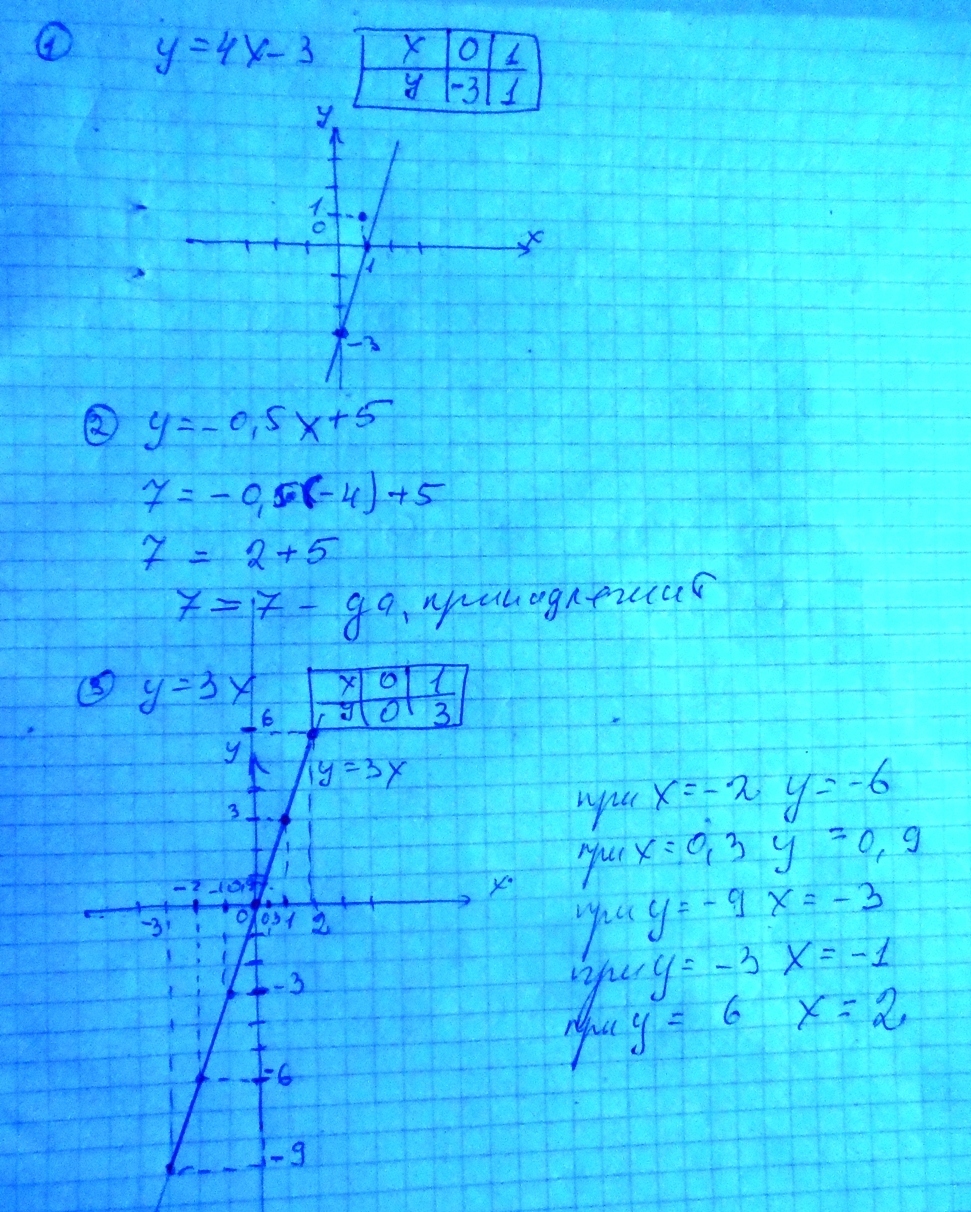 ① y = 4x - 3
x 0 1
y -3 1
y
1
0
x
1
-3
② y = -0,5x + 5
7 = -0,5(-4) + 5
7 = 2 + 5
7 = 7 - да, принадлежит
③ y = 3x
x 0 1
y 0 3
6
y
y = 3x
3
x
-3 -2 0 0,3 1 2
-3
-6
-9
при x = -2 y = -6
при x = 0,3 y = 0,9
при y = -9 x = -3
при y = -3 x = -1
при y = 6 x = 2